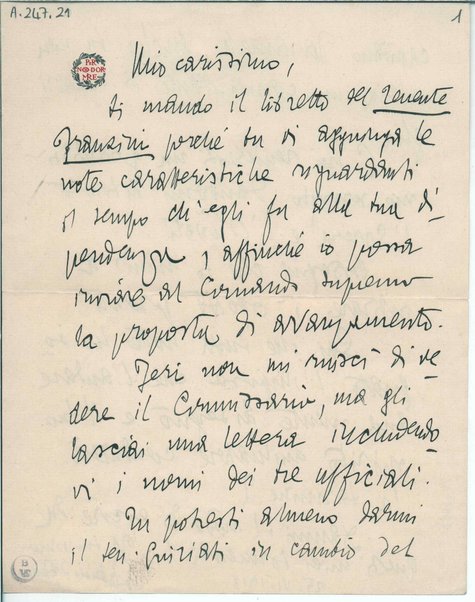 A.247.21
1
PER
NON DOR
MIRE
Mio carissimo,
ti mando il libretto del Tenente
Franzini perché tu vi aggiunga le
note caratteristiche riguardanti
il tempo ch'egli fu alla tua di-
pendenza, affinché io possa
inviare al Comando Supremo
la proposta di avanzamento.
Jeri non mi riuscì di ve-
dere il Commissario, ma gli
lasciai una lettera includendo-
vi i nomi dei tre ufficiali.
Tu potresti almeno darmi
il ten. in cambio del